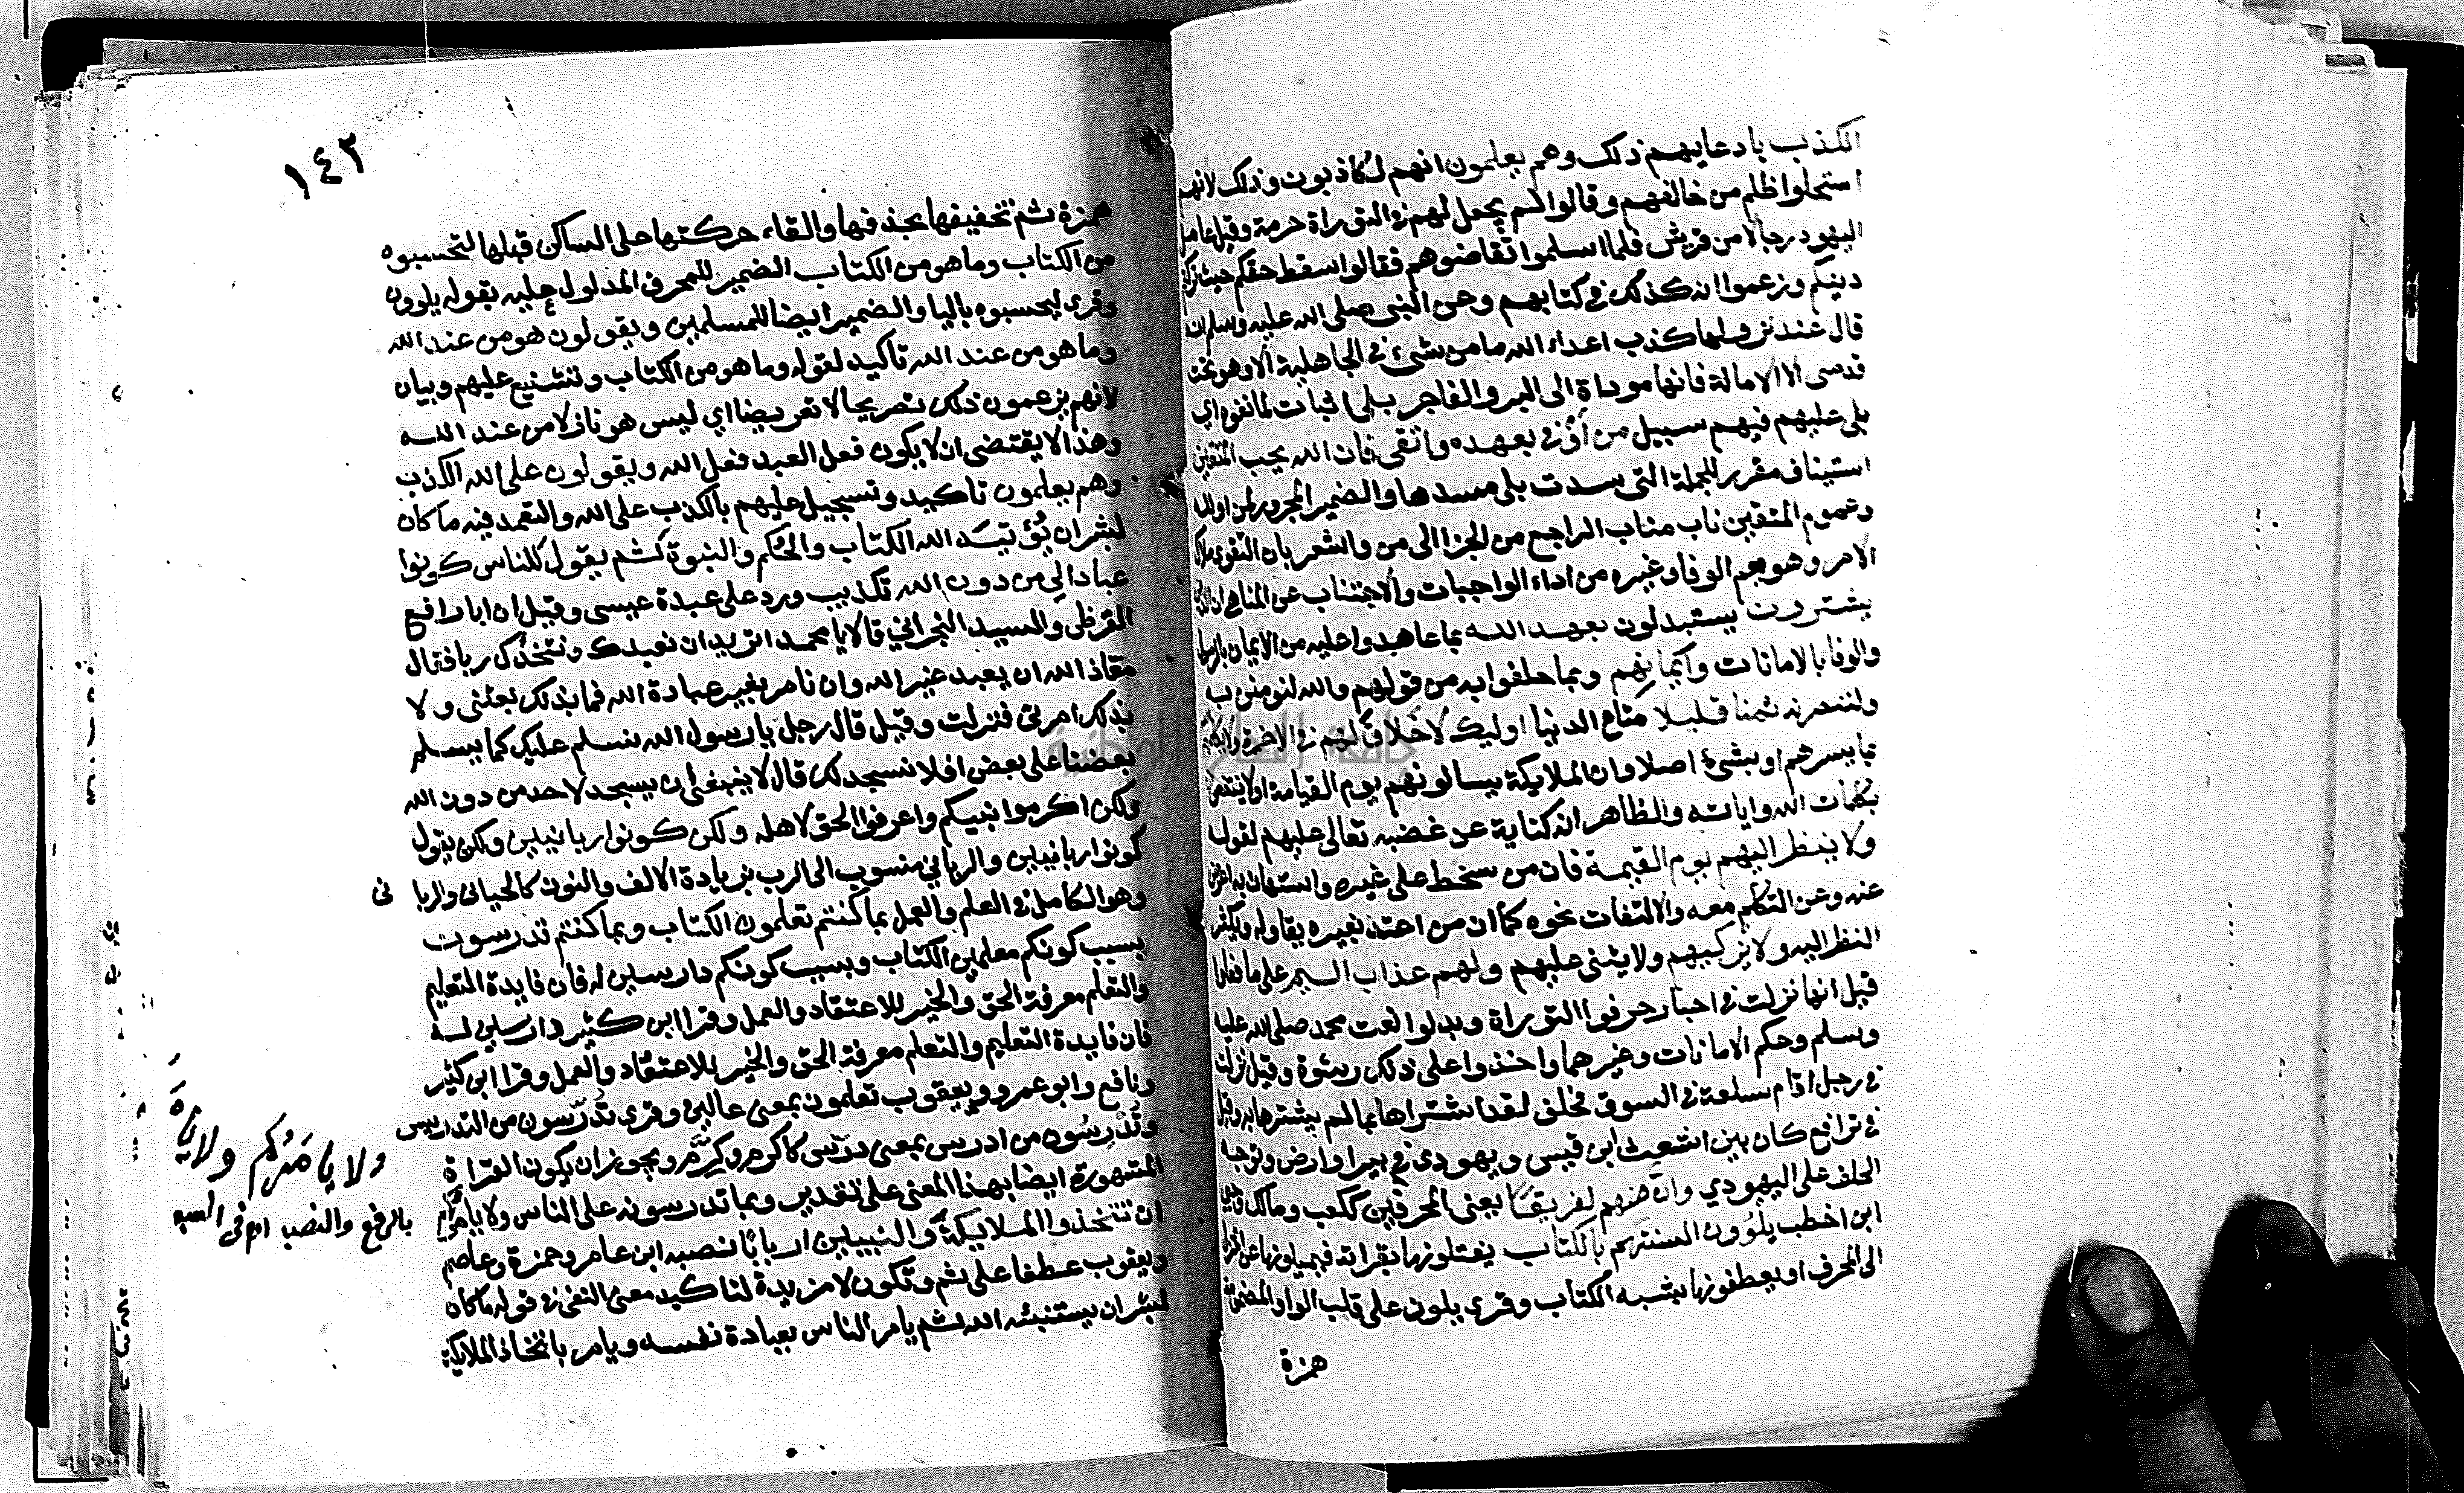 الكذب بادعايهم ذلك وهم يعلمون انهم لكاذبون وذلك لانهم
استحلوا ظلم من خالفهم وقالوا لم يجعل لهم في التوراة حرمة وقيل عامل
اليهود رجالا من قريش فلما اسلموا تقاضوهم فقالوا سقط حقكم حيث تركتم
دينكم وزعموا انه كذلك في كتابهم وعن النبي صلى الله عليه وسلم انه
قال عند نزولها كذب اعداء الله ما من شيء في الجاهلية الا وهو تحت
قدمي الا الامانة فانها موداة الى البر والفاجر بلى اثبات لما نفوه اي
بلى عليهم فيهم سبيل من أوفى بعهده واتقى فان الله يحب المتقين
استيناف مقرر للجملة التي سدت بلى مسدها والضمير المجرور لمن او لله
وعموم المتقين ناب مناب الراجع من الجزا الى من واشعر بان التقوى ملاك
الامر وهو يعم الوفا وغيره من اداء الواجبات والاجتناب عن المناهي ان الذين
يشترون يستبدلون بعهد الله بما عاهدوا عليه من الايمان بالرسول
والوفا بالامانات وأيمانهم وبما حلفوا به من قولهم والله لنومنن به
ولننصرنه ثمنا قليلا متاع الدنيا اوليك لاخلاق لهم في الاخرة ولا يكلمهم
بما يسرهم او بشيء اصلا وان الملايكة يسالونهم يوم القيامة اولا ينتفعون
بكلمات الله واياته والظاهر انه كناية عن غضبه تعالى عليهم لقوله
ولا ينظر اليهم يوم القيمة فان من سخط على غيره واستهان به اعرض
عنه وعن التكلم معه والالتفات نحوه كما ان من اعتد بغيره يقاوله ويكثر
النظر اليه ولا يزكيهم ولا يثني عليهم ولهم عذاب اليم على ما فعلوا
قيل انها نزلت في احبار حرفوا التوراة وبدلوا نعت محمد صلى الله عليه
وسلم وحكم الامانات وغيرهما واخذوا على ذلك رشوة وقيل نزلت
في رجل اقام سلعة في السوق فحلف لقد اشتراها بما لم يشترها به وقيل
في ترافع كان بين اشعث ابن قيس ويهودي في بير او ارض وتوجه
الحلف على اليهودي وان منهم لفريقا يعني المحرفين ككعب ومالك وحيي
ابن اخطب يلوون السنتهم بالكتاب يفتلونها بقراته فيميلونها عن المنزل
الى المحرف او يعطفونها بشبه الكتاب وقرى يلون على قلب الواو المضمومة
همزة
١٤٢
همزة ثم تخفيفها بحذفها والقاء حركتها على الساكن قبلها لتحسبوه
من الكتاب وما هو من الكتاب الضمير للمحرف المدلول عليه بقوله يلوون
وقرى ليحسبوه باليا والضمير ايضا للمسلمين ويقولون هو من عند الله
وما هو من عند الله تاكيد لقوله وما هو من الكتاب وتشنيع عليهم وبيان
لانهم يزعمون ذلك تصريحا لا تعريضا اي ليس هو نازلا من عند الله
وهذا لا يقتضي ان لا يكون فعل العبد فعل الله ويقولون على الله الكذب
وهم يعلمون تاكيد وتسجيل عليهم بالكذب على الله والتعمد فيه ما كان
لبشر ان يُؤتيَه الله الكتاب والحُكم والنبوة ثم يقول للناس كونوا
عبادا لي من دون الله تكذيب ورد على عبدة عيسى وقيل ان ابا رافع
القرظي والسيد النجراني قالا يا محمد اتريد ان نعبدك ونتخذك ربا فقال
معاذ الله ان يعبد غير الله وان نامر بغير عبادة الله فما بذلك بعثني ولا
بذلك امرني فنزلت وقيل قال رجل يا رسول الله نسلم عليك كما يسلم
بعضنا على بعض افلا نسجد لك قال لا ينبغي ان يسجد لاحد من دون الله
ولكن اكرموا نبيكم واعرفوا الحق لاهله ولكن كونوا ربانيين ولكن يقول
كونوا ربانيين والرباني منسوب الى الرب بزيادة الالف والنون كالحياني والربا ني
وهو الكامل في العلم والعمل بما كنتم تعلمون الكتاب وبما كنتم تدرسون
بسبب كونكم معلمين الكتاب وبسبب كونكم دارسين له فان فايدة التعليم
والتعلم معرفة الحق والخير للاعتقاد والعمل وقرا ابن كثير دارسين له
فان فايدة التعليم والتعلم معرفة الحق والخير للاعتقاد والعمل وقرا ابن كثير
ونافع وابو عمرو ويعقوب تعلمون بمعنى عالمين وقرى تُدرِّسون من التدريس
وتُدْرِسُون من ادرس بمعنى درّس كاكرم وكرّم ويجوز ان يكون القراة
المشهورة ايضا بهذا المعنى على تقدير وبما تدرسونه على الناس ولا يامركم
ان تتخذوا الملايكة والنبيين اربابا نصبه ابن عامر وحمزة وعاصم
ويعقوب عطفا على ثم وتكون لا مزيدة لتاكيد معنى النفي في قوله ما كان
لبشر ان يستنبئه الله ثم يامر الناس بعبادة نفسه ويامر باتخاذ الملايكة
ولا يامَرُكم
بالرفع والنصب